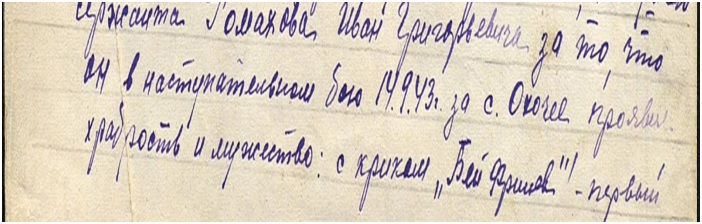 сержанта Ромахова Иван Григорьевича за то, что
он в наступательном бою 14.9.43г. за с. Охочее проявил
храбрость и мужество: с криком "Бей Фрицев"! - первый